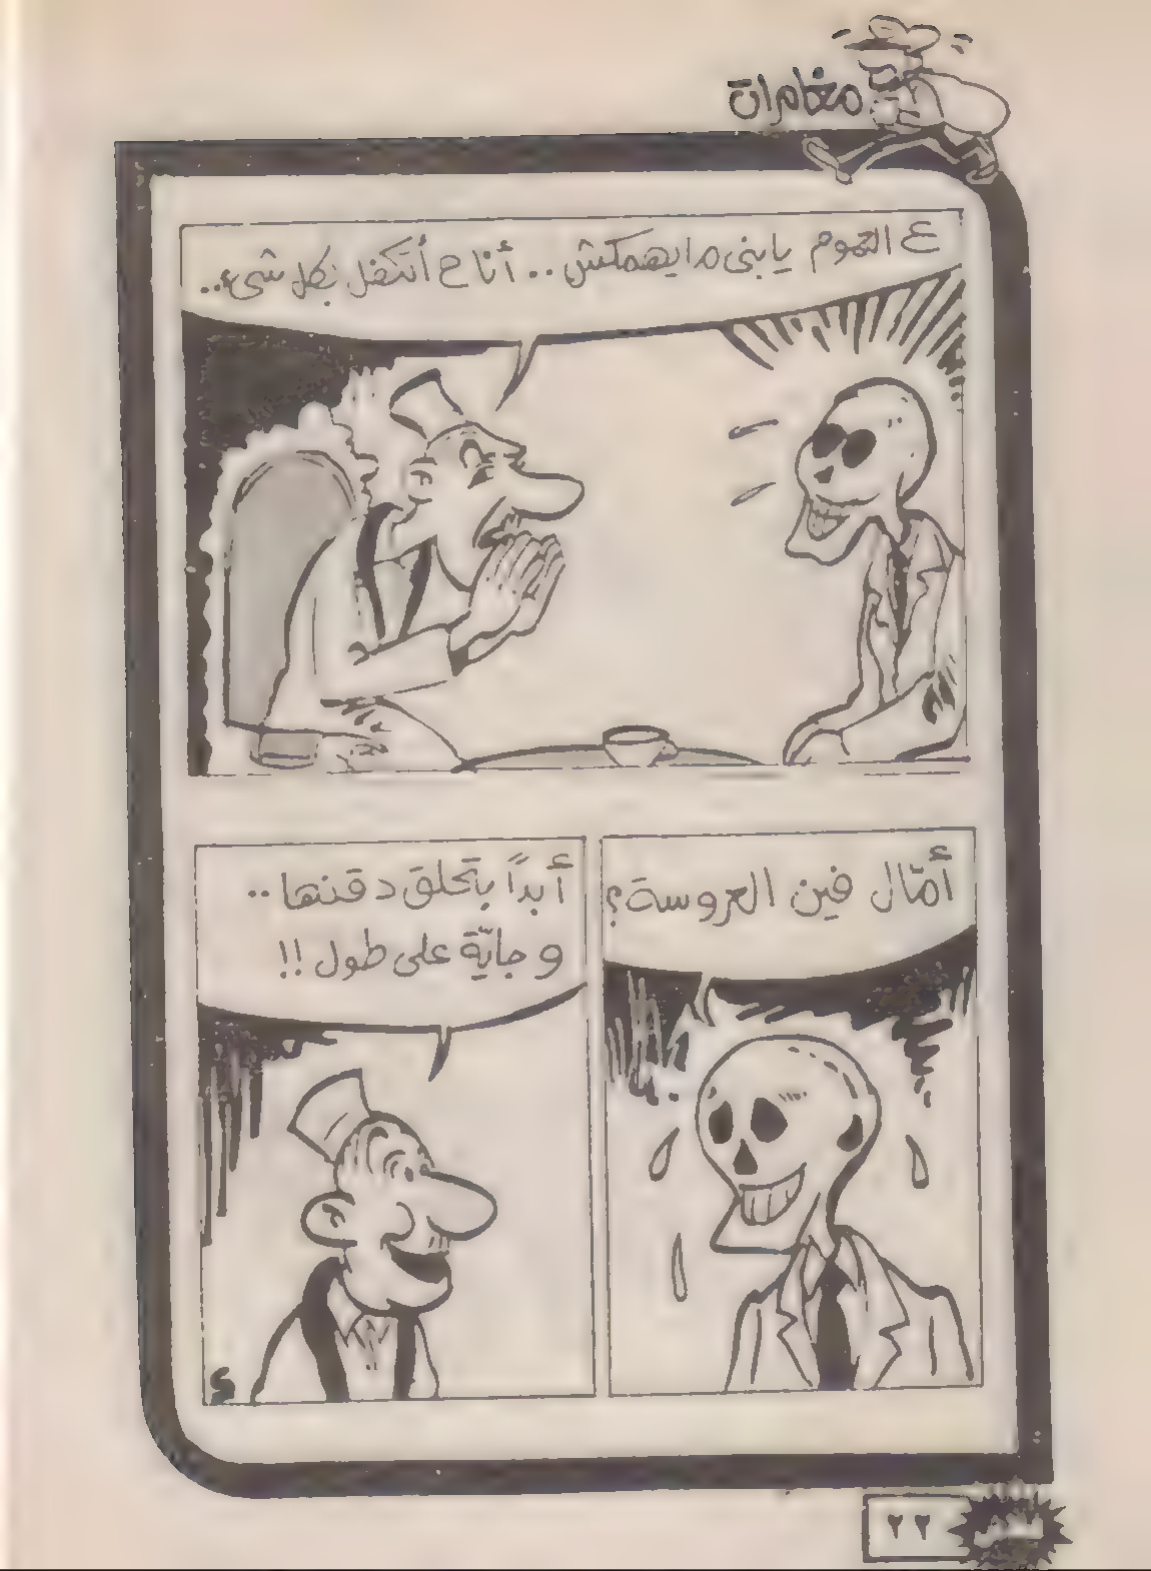 مغامرات
ع العموم يابنى مايهمكش .. أنا ح أتكفل بكل شىء ..
أمّال فين العروسة؟
أبداً بتحلق دقنها ..
و جايّة على طول !!
٢٢